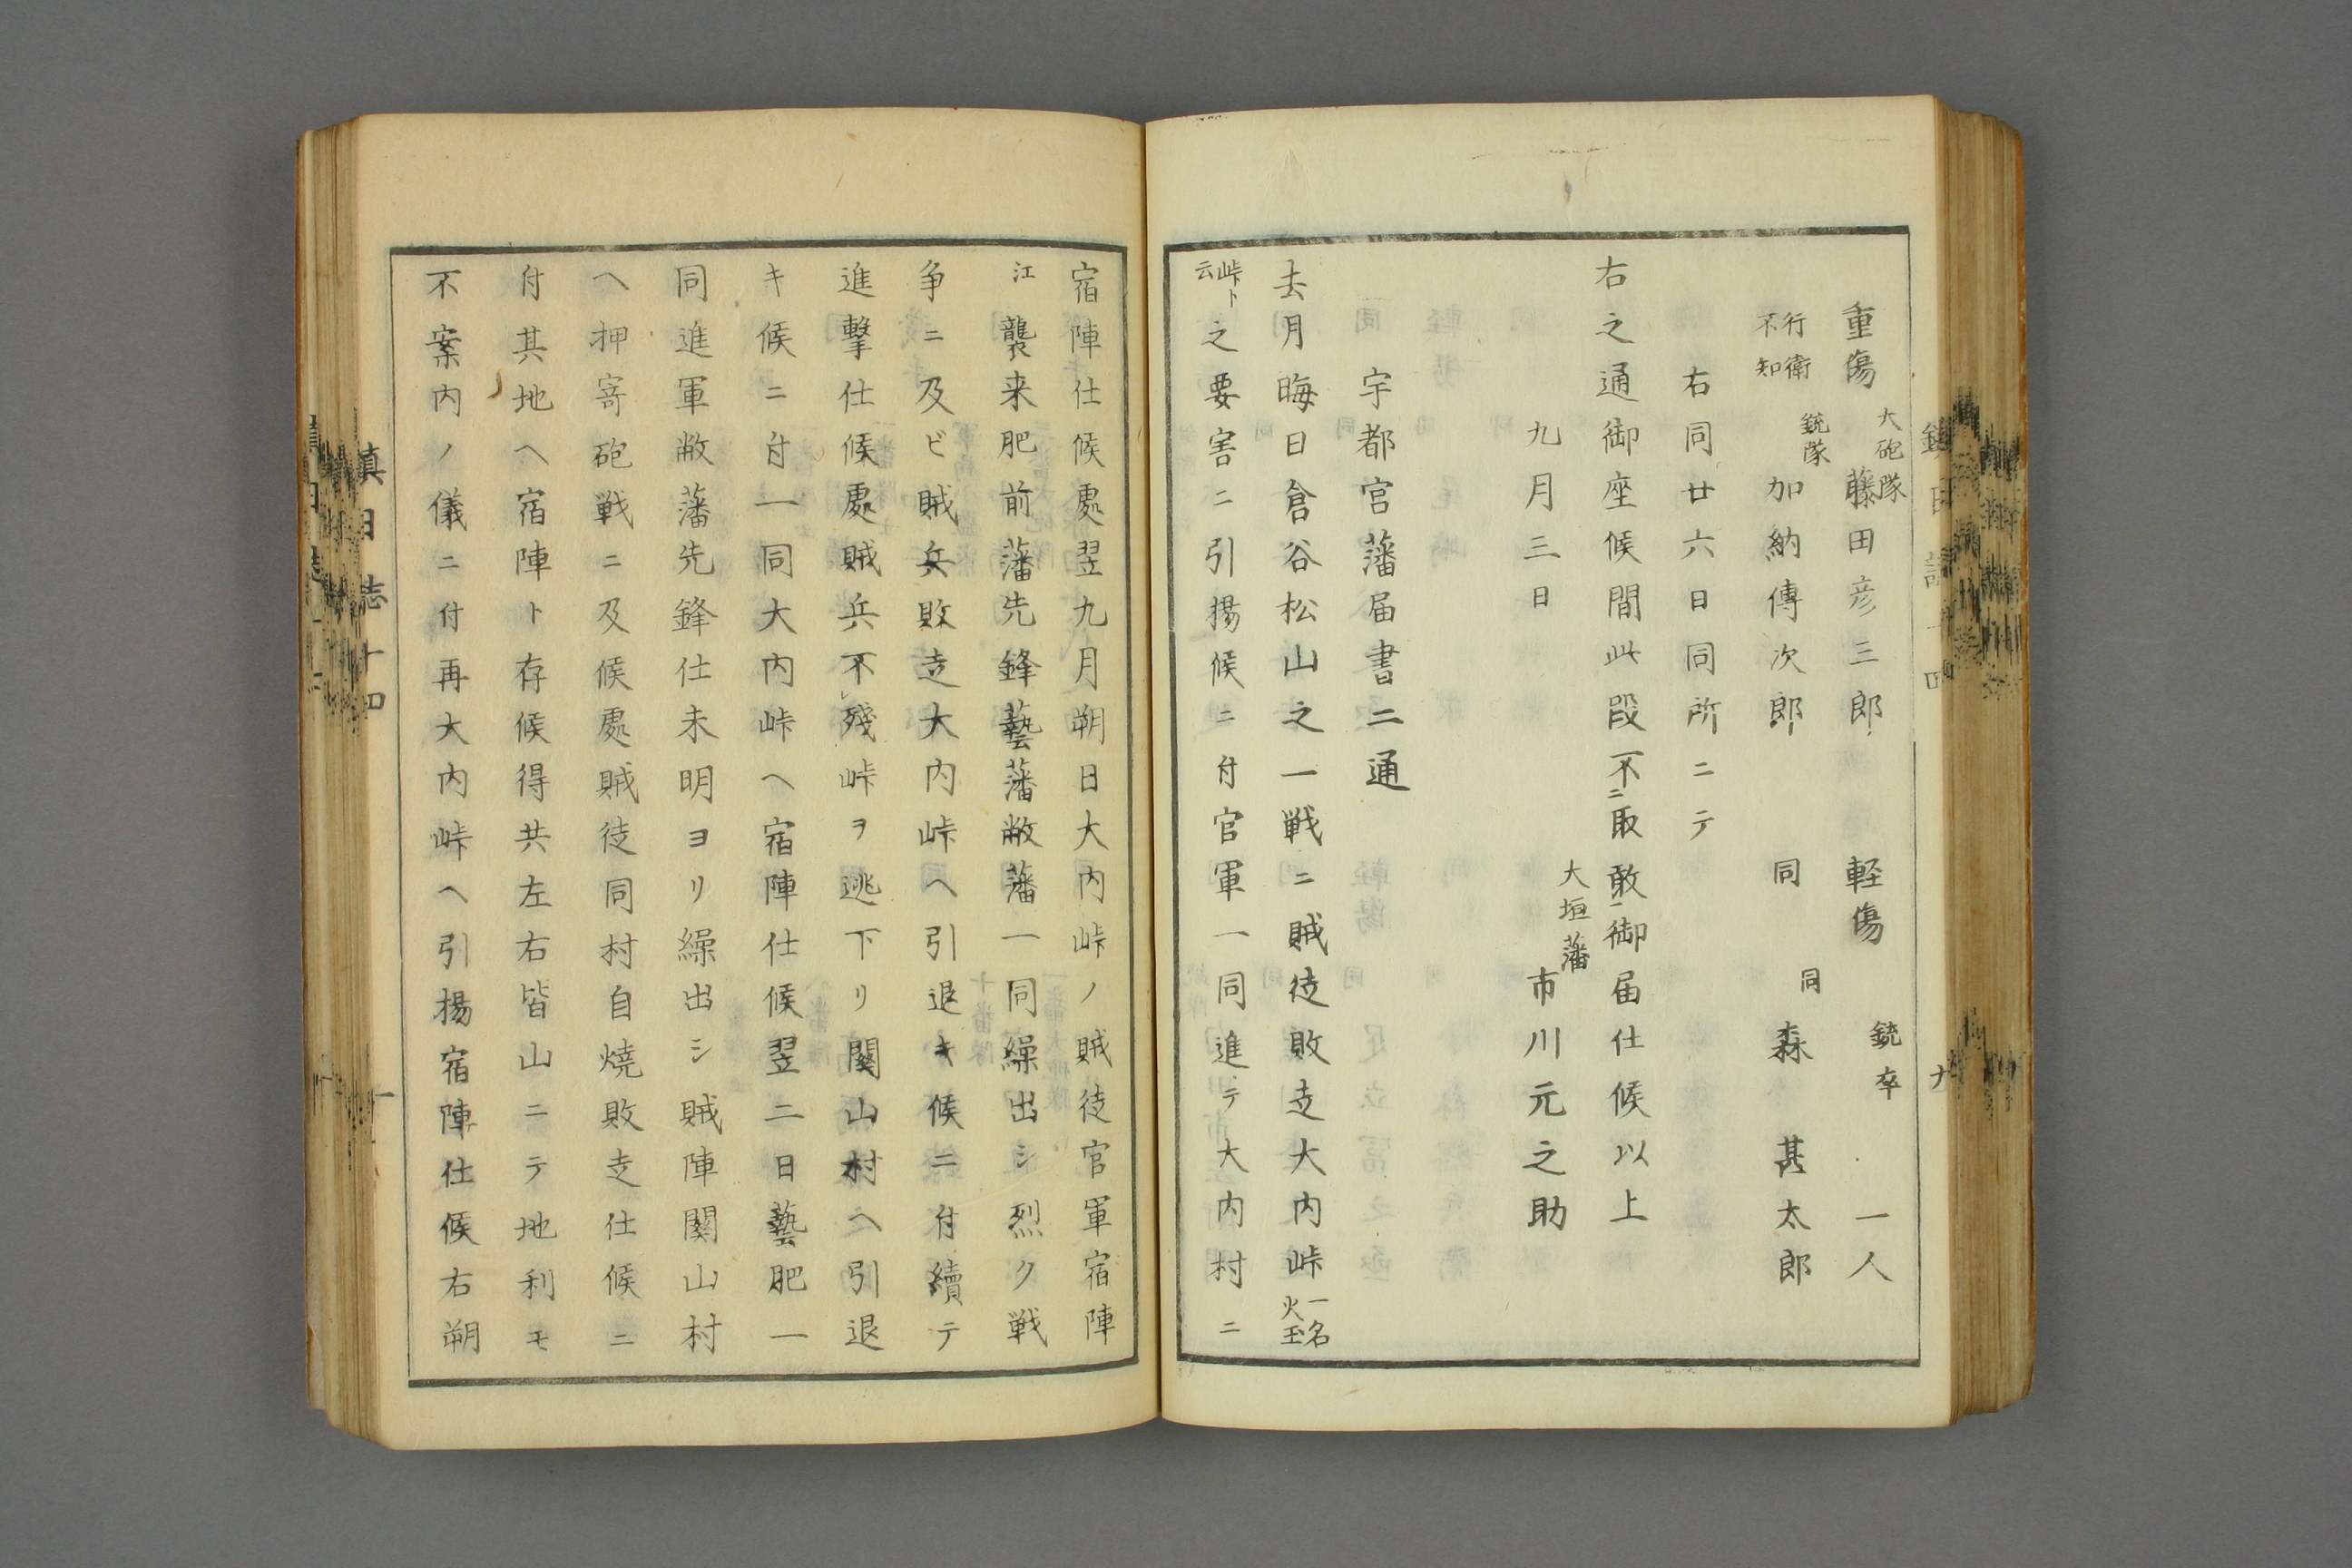 重傷 大砲隊 藤田彦三郎 軽傷 銃卒 一人
行衛不知 銃隊 加納傳次郎 同 同 森甚太郎
右同廿六日同所ニテ
右之通御座候間此段不ニ取敢一御届仕候以上
九月三日
大垣藩 市川元之助
宇都宮藩届書二通
去月晦日倉谷松山之一戦ニ賊徒敗走大内峠一名火玉
峠ト云之要害ニ引揚候ニ付官軍一同進テ大内村ニ
宿陣仕候處翌九月朔日大内峠ノ賊徒官軍宿陣
江襲来肥前藩先鋒藝藩敝藩一同繰出シ烈ク戦
争ニ及ビ賊兵敗走大内峠ヘ引退キ候ニ付續テ
進撃仕候處賊兵不レ殘峠ヲ逃下リ關山村ヘ引退
キ候ニ付一同大内峠ヘ宿陣仕候翌二日藝肥一
同進軍敝藩先鋒仕未明ヨリ繰出シ賊陣關山村
ヘ押寄砲戦ニ及候處賊徒同村自燒敗走仕候ニ
付其地ヘ宿陣ト存候得共左右皆山ニテ地利モ
不案内ノ儀ニ付再大内峠ヘ引揚宿陣仕候右朔
鎮日誌十四